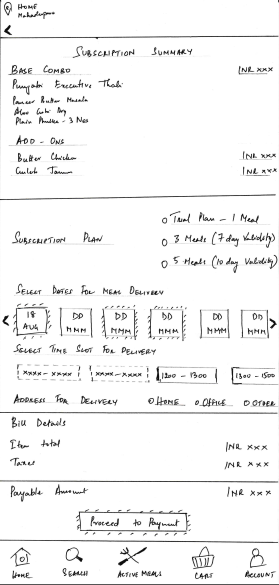 HOME
Mahadevpura
SUBSCRIPTION SUMMARY
BASE COMBO INR xxx
Punjabi Executive Thali
Paneer Butter Masala
Aloo Gobi Dry
Plain Phulka - 3 Nos
ADD - ONS
Butter Chicken INR xxx
Gulab Jamun INR xxx
SUBSCRIPTION PLAN
O Trial Plan - 1 Meal
O 3 Meals (7 day Validity)
O 5 Meals (10 day Validity)
SELECT DATES FOR MEAL DELIVERY
< 18 AUG DD MMM DD MMM DD MMM DD MMM DD MMM >
SELECT TIME SLOT FOR DELIVERY
xxxx - xxxx xxxx - xxxx 1200 - 1300 1300 - 1500
ADDRESS FOR DELIVERY O HOME O OFFICE O OTHER
Bill Details
Item total INR xxx
Taxes INR xxx
Payable Amount INR xxx
Proceed to Payment
HOME SEARCH ACTIVE MEALS CART ACCOUNT